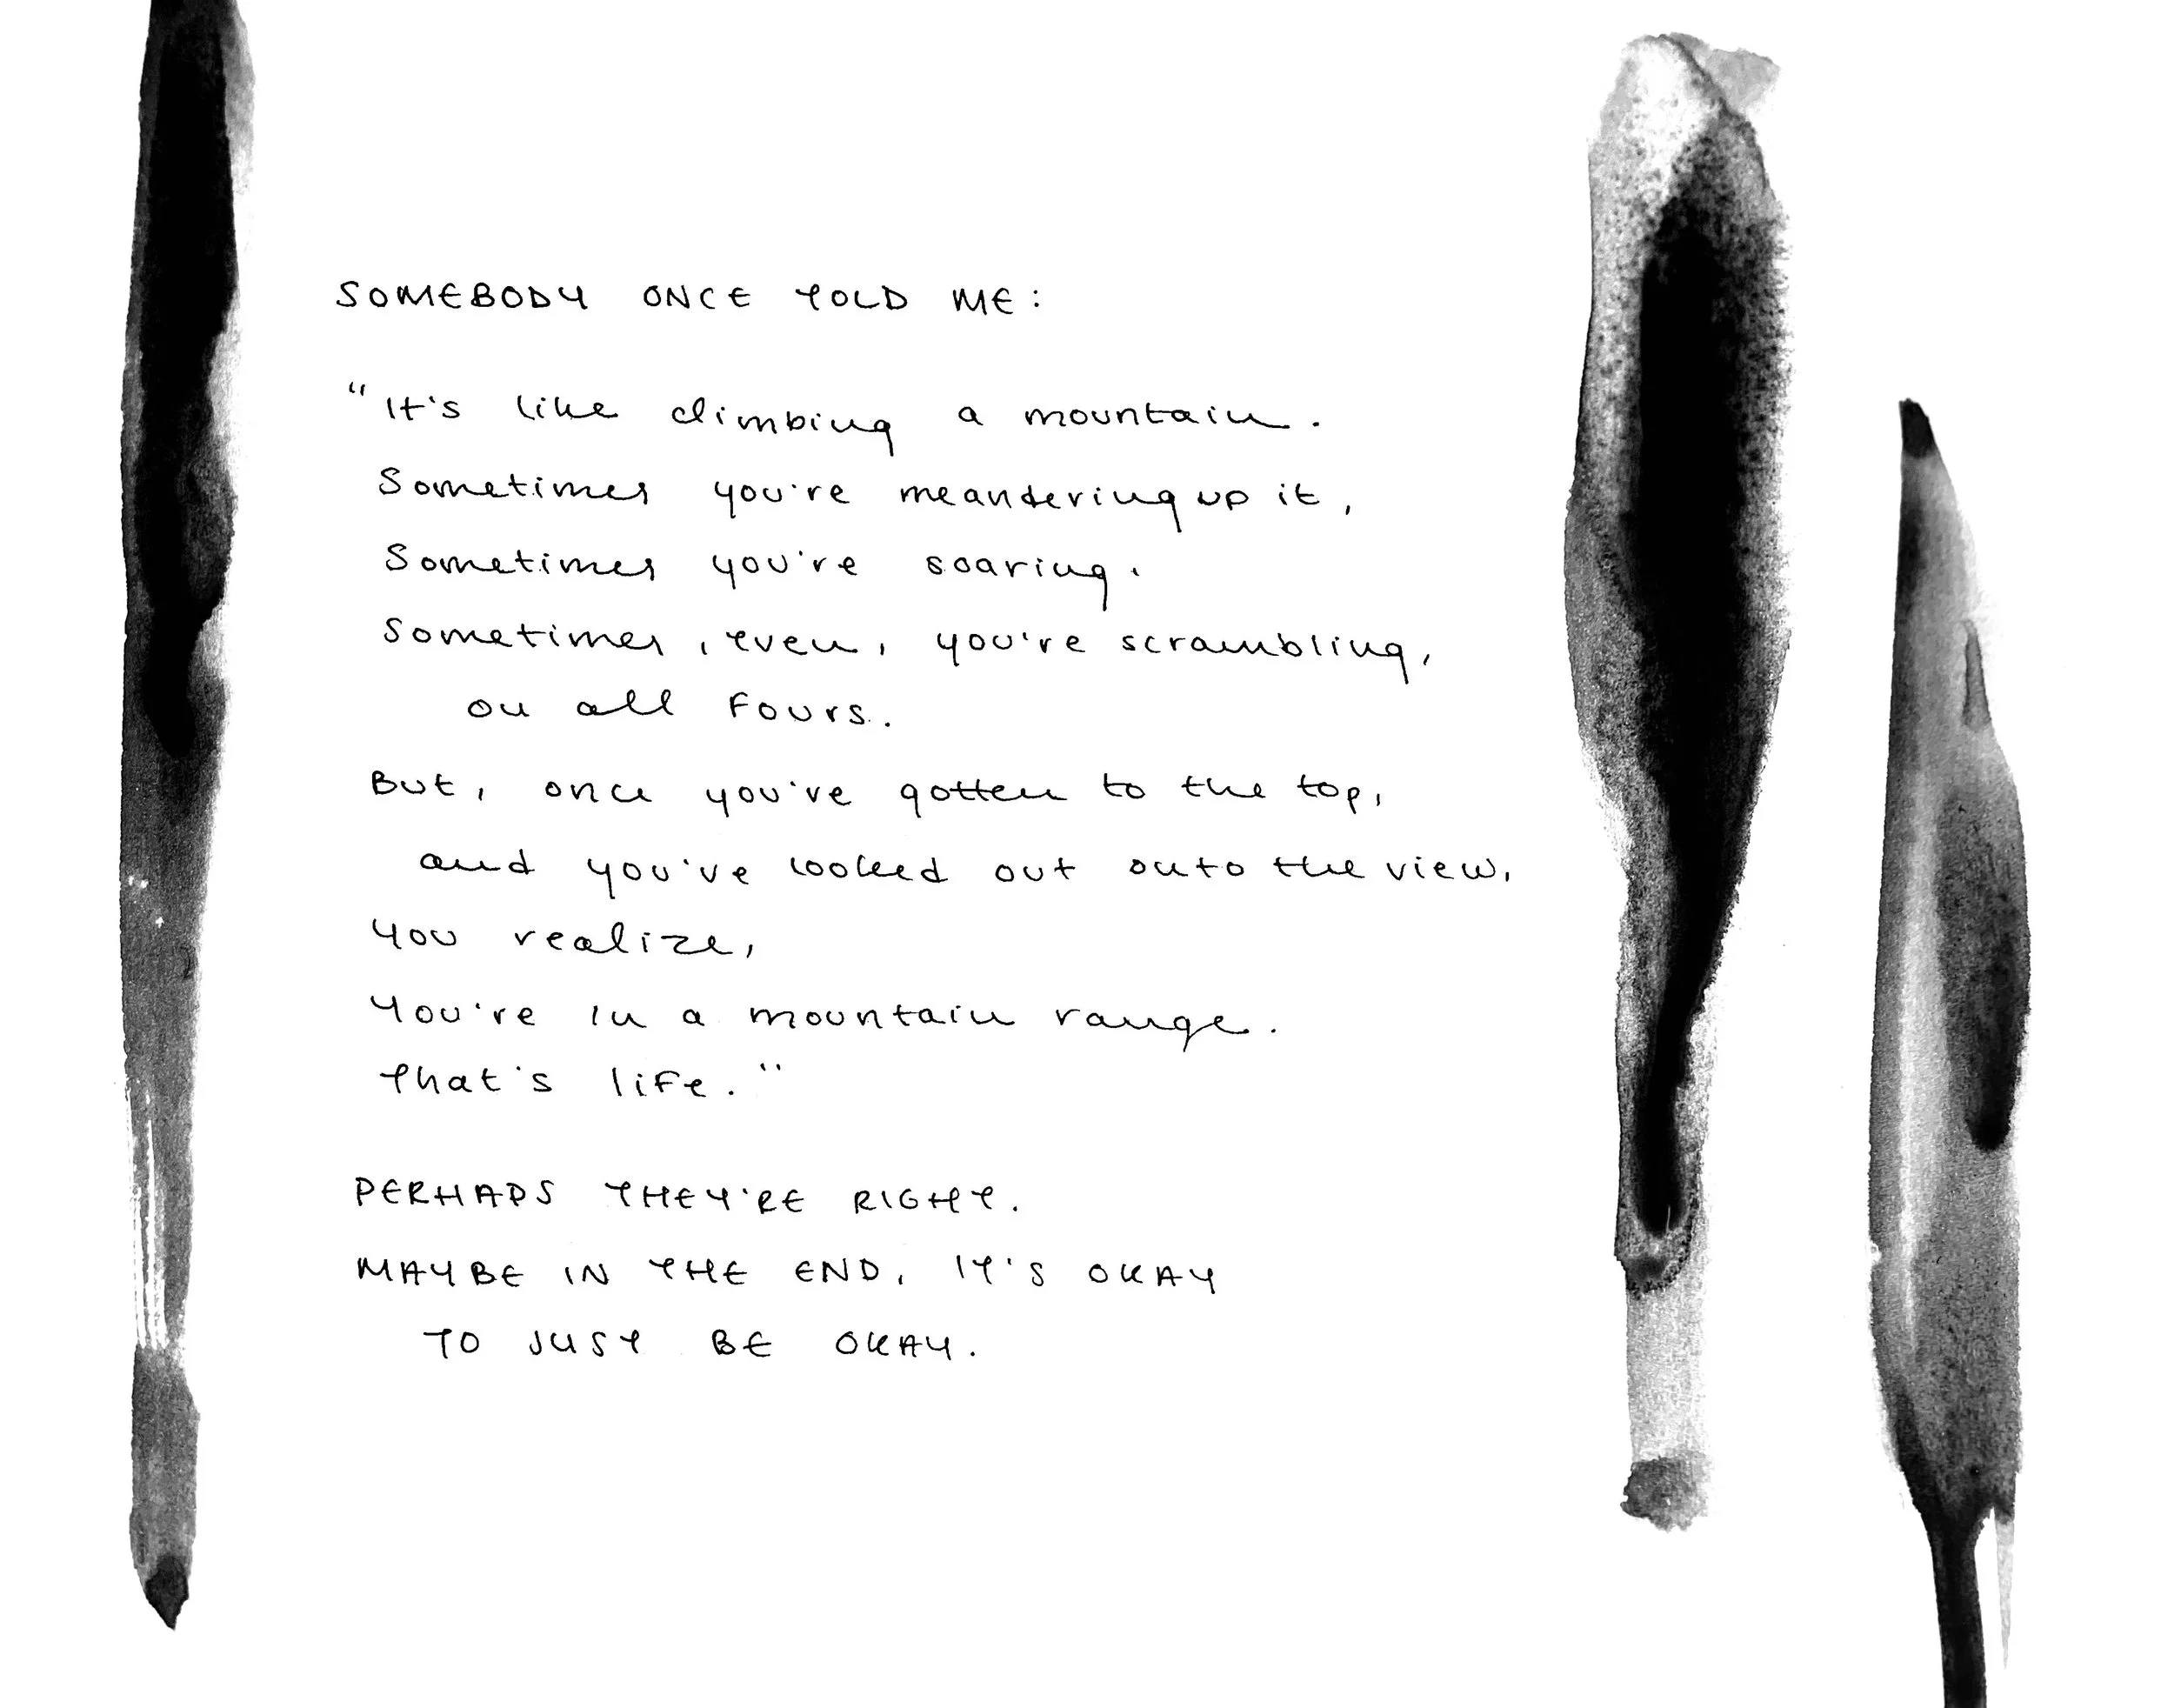 SOMEBODY ONCE TOLD ME:
"It's like climbing a mountain.
Sometimes you're meandering up it,
Sometimes you're soaring.
Sometimes, even, you're scrambling,
on all fours.
But, once you've gotten to the top,
and you've looked out onto the view,
you realize,
you're in a mountain range.
That's life."
PERHAPS THEY'RE RIGHT.
MAYBE IN THE END, IT'S OKAY
TO JUST BE OKAY.